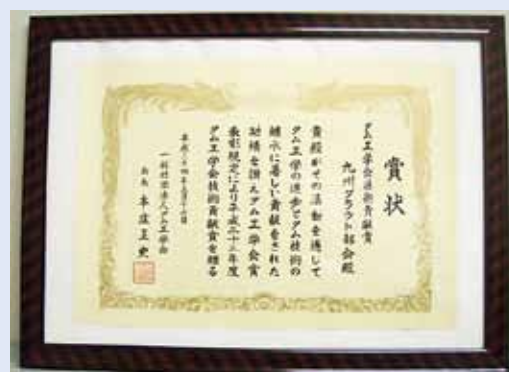 賞状
ダム工学会技術貢献賞
九州グラウト部会殿
貴殿がその活動を通して
ダム工学の進歩とダム技術の
継承に著しい貢献をされた
功績を讃えダム工学会賞
表彰規定により平成二十三年度
ダム工学会技術貢献賞を贈る
平成二十四年五月十六日
一般社団法人ダム工学会
会長